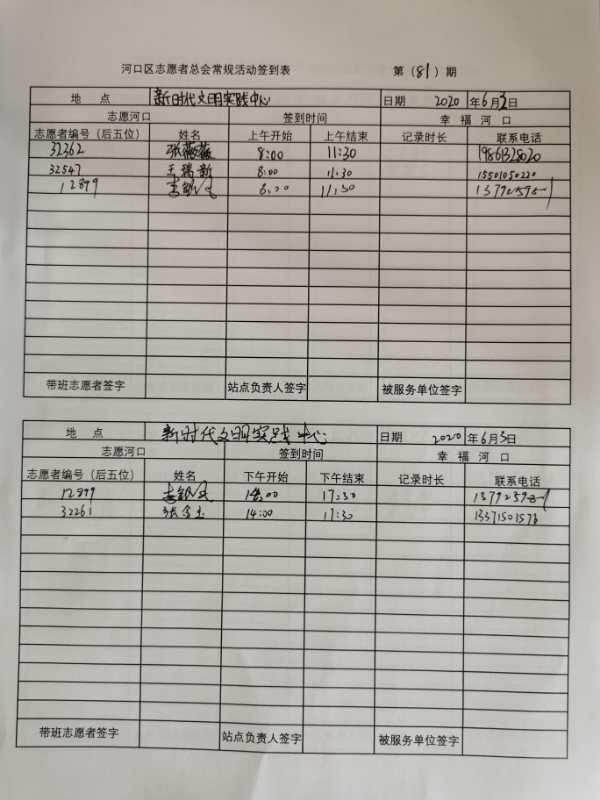 河口区志愿者总会常规活动签到表 第（81）期
地 点 新时代文明实践中心 日期 2020 年6月3日
志愿河口 签到时间 幸 福 河 口
志愿者编号（后五位） 姓名 上午开始 上午结束 记录时长 联系电话
32362 张薇薇 8:00 11:30 19861328020
32547 王瑞新 8:00 11:30 15501050220
12899 11:30
带班志愿者签字 站点负责人签字 被服务单位签字
地 点 新时代文明实践中心 日期 2020 年6月3日
志愿河口 签到时间 幸 福 河 口
志愿者编号（后五位） 姓名 下午开始 下午结束 记录时长 联系电话
12899 14:00 17:30
32261 14:00 17:30 13371501576
带班志愿者签字 站点负责人签字 被服务单位签字